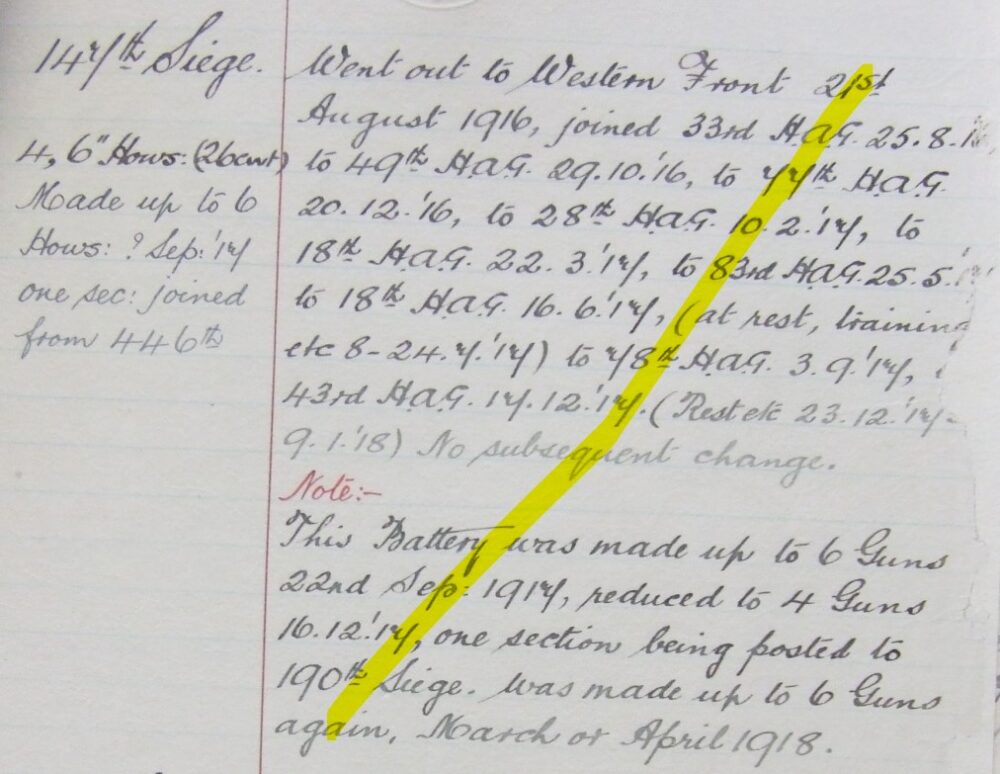 147th Siege.
4, 6" Hows: (26cwt)
Made up to 6
Hows: ? Sep: '17
one sec: joined
from 446th
Went out to Western Front 21st
August 1916, joined 33rd H.A.G. 25.8.
to 49th H.A.G. 29.10.'16, to 77th H.A.G.
20.12.'16, to 28th H.A.G. 10.2.'17, to
18th H.A.G. 22.3.'17, to 83rd H.A.G. 25.5.
to 18th H.A.G. 16.6.'17, (at rest, training
etc 8-24.7.'17) to 78th H.A.G. 3.9.'17,
43rd H.A.G. 17.12.'17. (Rest etc 23.12.'17-
9.1.'18) No subsequent change.
Note:-
This Battery was made up to 6 Guns
22nd Sep: 1917, reduced to 4 Guns
16.12.'17, one section being posted to
190th Siege. Was made up to 6 Guns
again, March or April 1918.